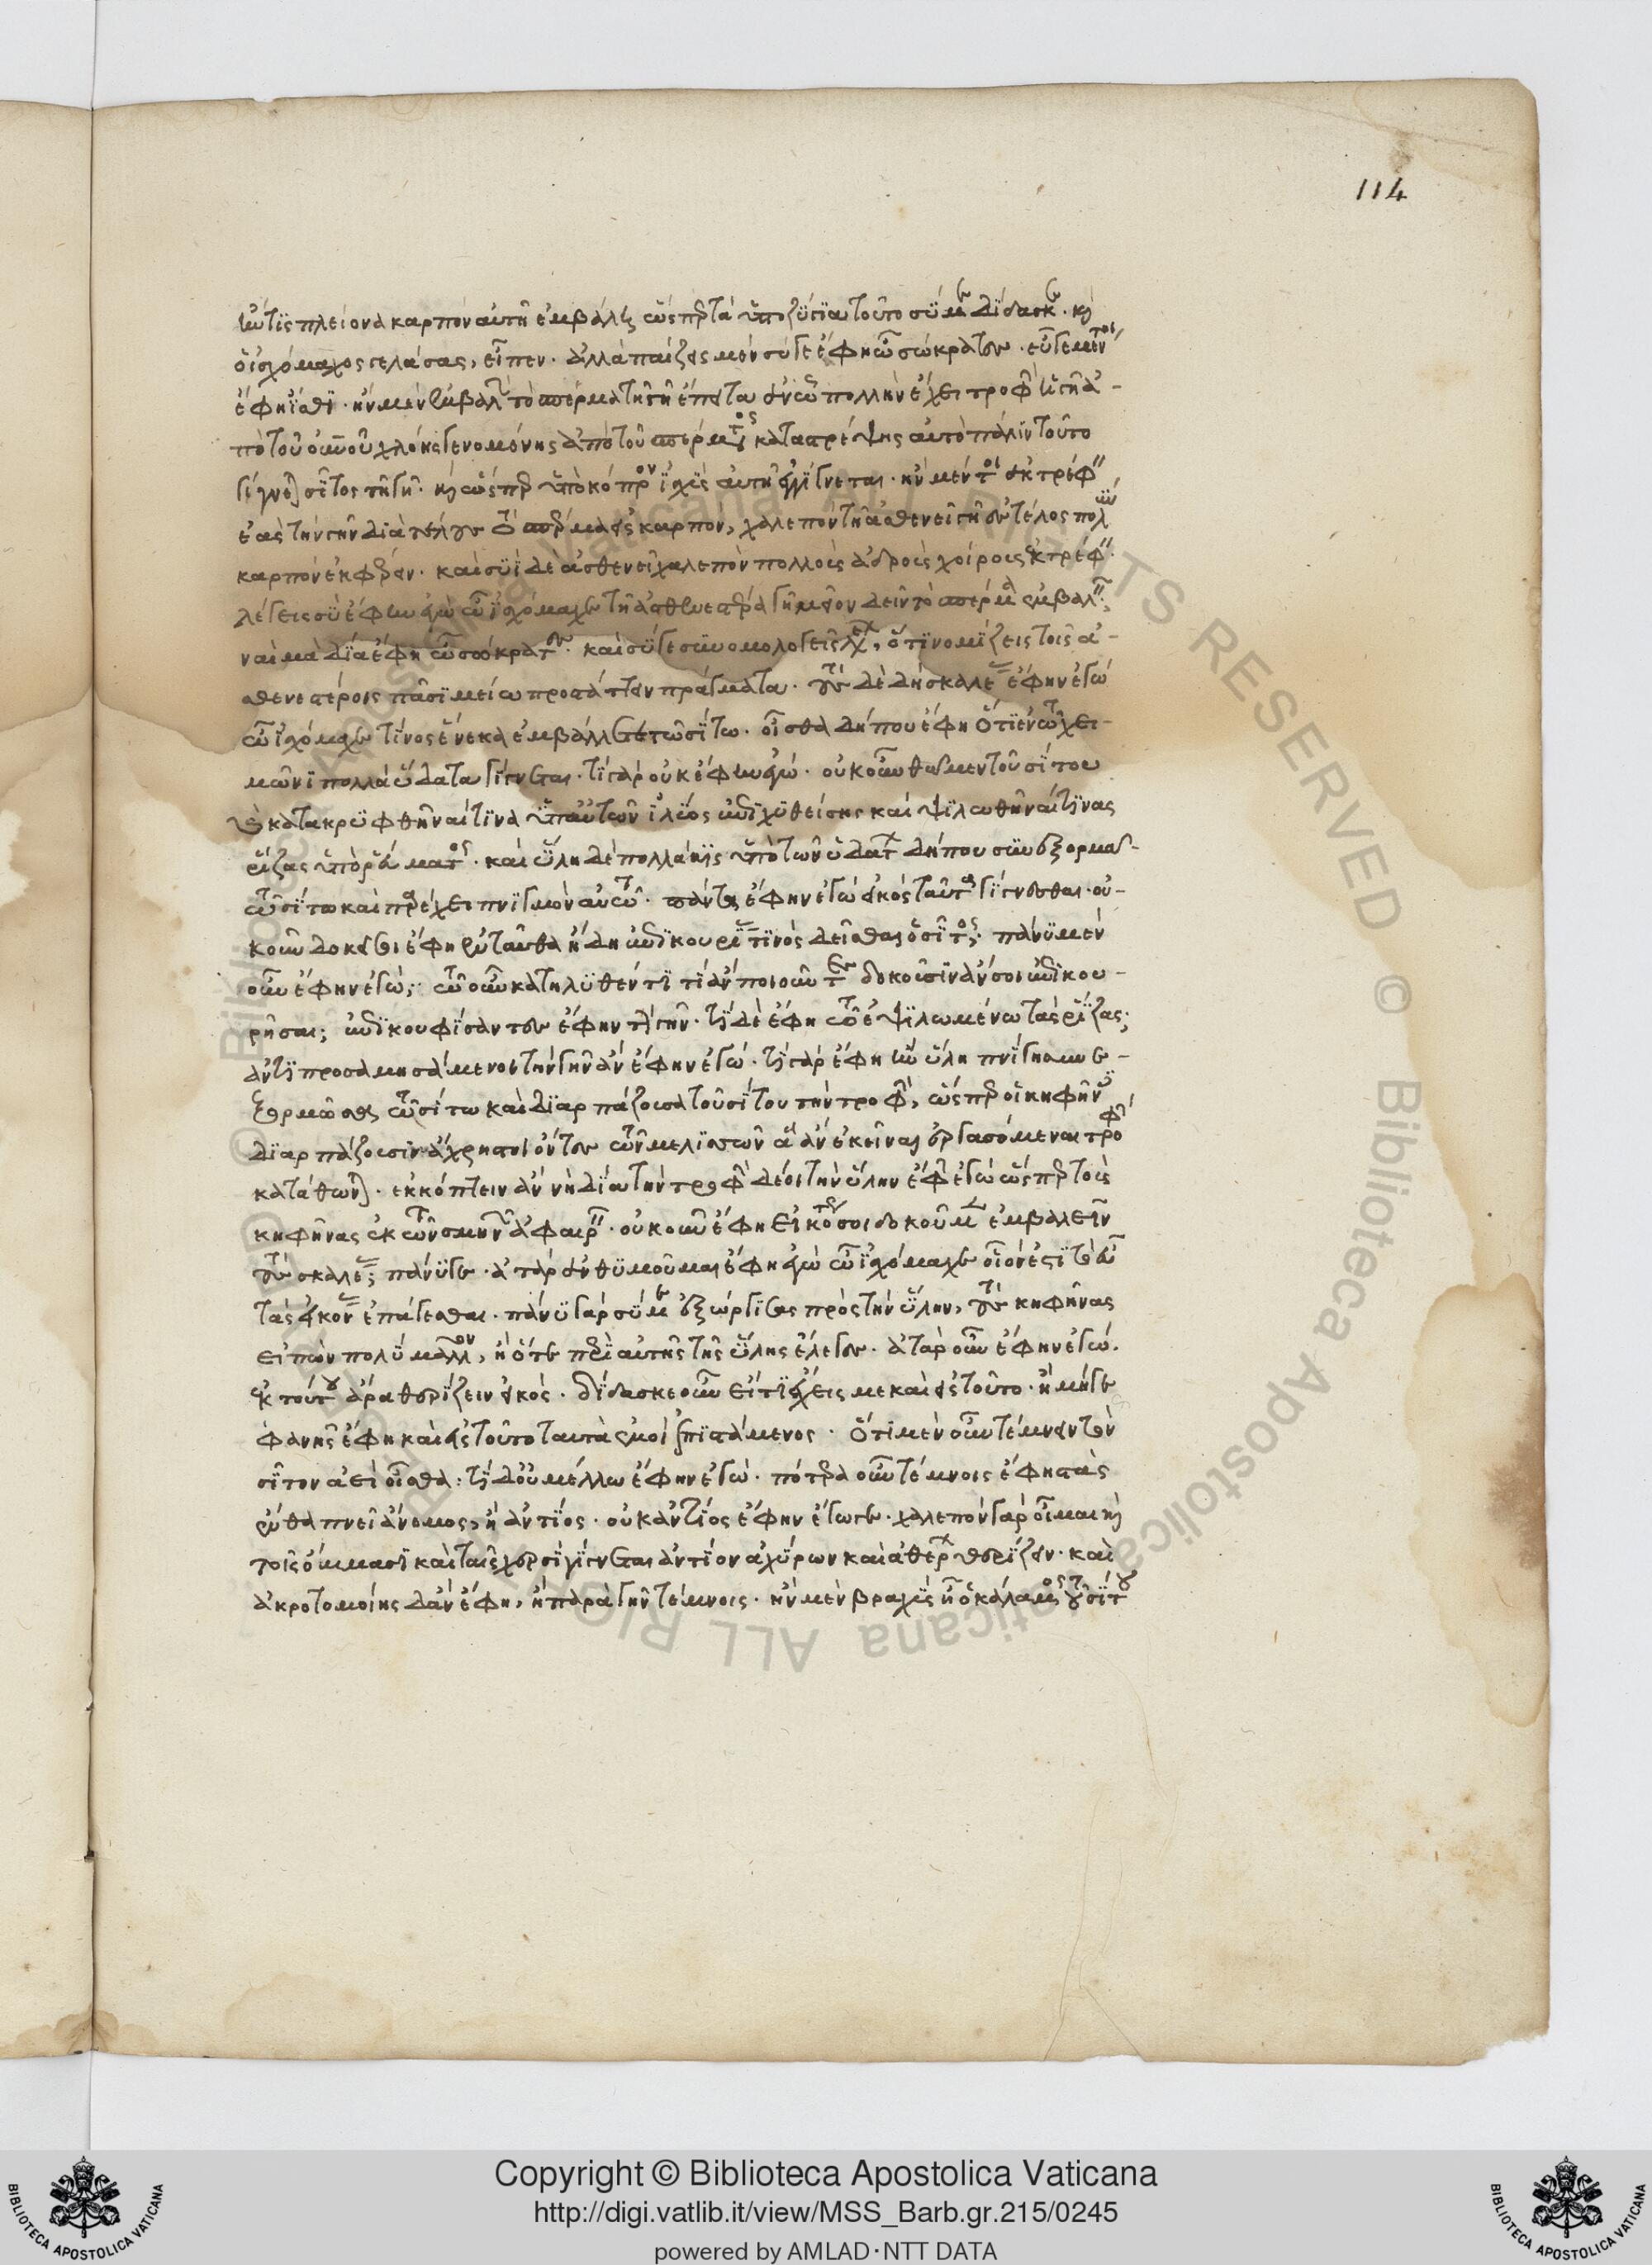 114
ἤν τις πλείονα καρπὸν αὐτῇ ἐμβάλῃ ὥσπερ τὰ ὑποζύγια τοῦτο σύ με δίδασκε · καὶ
ὁ ἰσχόμαχος γελάσας, εἶπεν · ἀλλὰ παίζεις μὲν σύγε ἔφη ὦ σώκρατες · εὖ γε μέντοι
ἔφη ἴσθι · ἢν μὲν ἐμβαλὼν τὸ σπέρμα τῇ γῇ ἔπειτα ἐν ὧ πολλὴν ἔχει τροφὴν ἡ γῆ ἀ-
πὸ τοῦ οὐνοῦ χλόης γενομένης ἀπὸ τοῦ σπέρματος καταστρέψης αὐτὸ πάλιν τοῦτο
γίγνεται σῖτος τῇ γῇ · καὶ ὥσπερ ὑπὸ κόπρου ἰσχὺς αὐτῇ ἐγγίγνεται · ἢν μέντοι ἐκτρέφειν
ἐᾷς τὴν γῆν διὰ τέλους τὸ σπέρμα εἰς καρπὸν, χαλεπὸν τῇ ἀσθενεῖ γῇ ἐς τέλος πολὺν
καρπὸν ἐκφέρειν · καὶ συῒ δὲ ἀσθενεῖ χαλεπὸν πολλοὺς ἁδροὺς χοίρους ἐκτρέφειν ·
λέγεις σὺ ἔφην ἐγὼ ὦ ἰσχόμαχε τῇ ἀσθενεστέρᾳ γῇ μεῖον δεῖν τὸ σπέρμα ἐμβαλεῖν ;
ναὶ μὰ δία ἔφη ὦ σώκρατες · καὶ σύγε συνομολογεῖς λέγων, ὅτι νομίζεις τοῖς ἀ-
σθενεστέροις πᾶσι μείω προστάττειν πράγματα · τοὺς δὲ δὴ σκαλέας ἔφην ἐγώ
ὦ ἰσχόμαχε τίνος ἕνεκα ἐμβάλλετε τῷ σίτω · οἶσθα δήπου ἔφη ὅτι ἐν τῶ χει-
μῶνι πολλὰ ὕδατα γίγνεται · τί γὰρ οὐκ ἔφην ἐγώ · οὐκοῦν θῶμεν τοῦ σίτου
καὶ κατακρυφθῆναί τινα ὑπ' αὐτῶν ἰλύος ἐπιχυθείσης καὶ ψιλωθῆναί τινας
ῥίζας ὑπὸ ῥεύματος · καὶ ὕλη δὲ πολλάκις ὑπὸ τῶν ὑδάτων δήπου συνεξορμᾶ
τῷ σίτω καὶ παρέχει πνιγμὸν αὐτῷ · πάντα ἔφην ἐγώ εἰκὸς ταῦτα γίγνεσθαι · οὐ-
κοῦν δοκεῖ σοι ἔφη ἐνταῦθα ἤδη ἐπικουρίας τινὸς δεῖσθαι ὁ σῖτος ; πάνυ μὲν
οὖν ἔφην ἐγώ ; τῷ οὖν κατηλυθέντι τί ἂν ποιοῦντες δοκοῦσιν ἄν σοι ἐπικου-
ρῆσαι ; ἐπικουφίσαντες ἔφην τὴν γῆν · τί δὲ ἔφη τῷ ἐψιλωμένω τὰς ῥίζας ;
ἀντιπροσαμησάμενοι τὴν γῆν ἂν ἔφην ἐγώ · τί γὰρ ἔφη ἢν ὕλη πνίγη συνε-
ξορμῶσα τῷ σίτω καὶ διαρπάζουσα τοῦ σίτου τὴν τροφὴν, ὥσπερ οἱ κηφῆνες
διαρπάζουσιν ἄχρηστοι ὄντες τῶν μελισσῶν ἃ ἂν ἐκεῖναι ἐργασάμεναι τροφὴν
καταθῶνται · ἐκκόπτειν ἂν νὴ δία τὴν τροφὴν δέοι τὴν ὕλην ἔφην ἐγώ ὥσπερ τοὺς
κηφῆνας ἐκ τῶν σμηνῶν ἀφαιρεῖν · οὐκοῦν ἔφη εἰκότως σοι δοκοῦμεν ἐμβαλεῖν
τοὺς σκαλέας ; πάνυγε · ἀτὰρ ἐνθυμοῦμαι ἔφην ἐγὼ ὦ ἰσχόμαχε οἷόν ἐστι τὸ εὖ
τὰς εἰκόνας ἐπάγεσθαι · πάνυ γὰρ σύ με ἐξώργισας πρὸς τὴν ὕλην, τοὺς κηφῆνας
εἰπὼν πολὺ μᾶλλον, ἢ ὅτε περὶ αὐτῆς τῆς ὕλης ἔλεγες · ἀτὰρ οὖν ἔφην ἐγώ ·
ἐκ τούτου ἄρα θερίζειν εἰκός · δίδασκε οὖν εἴ τι ἔχεις με καὶ εἰς τοῦτο · ἢν μήγε
φανῆς ἔφη καὶ εἰς τοῦτο ταυτὰ ἐμοὶ ἐπιστάμενος · ὅτι μὲν οὖν τέμνειν τὸν
σῖτον δεῖ οἶσθα : τί δ' οὐ μέλλω ἔφην ἐγώ · πότερα οὖν τέμνοις ἔφη στὰς
ἔνθα πνεῖ ἄνεμος, ἢ ἀντίος · οὐκ ἀντίος ἔφην ἔγωγε · χαλεπὸν γὰρ οἶμαι καὶ
τοῖς ὄμμασι καὶ ταῖς χερσὶ γίγνεται ἀντίον ἀχύρων καὶ ἀθέρων θερίζειν · καὶ
ἀκροτομοίης δ' ἂν ἔφη, ἢ παρὰ γῆν τέμνοις · ἢν μὲν βραχὺς ἦ ὁ κάλαμος τοῦ σίτου
Copyright © Biblioteca Apostolica Vaticana
http://digi.vatlib.it/view/MSS_Barb.gr.215/0245
powered by AMLAD·NTT DATA